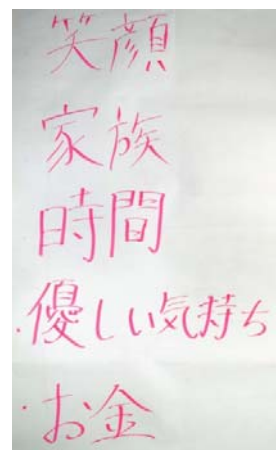 笑顔
家族
時間
・優しい気持ち
・お金